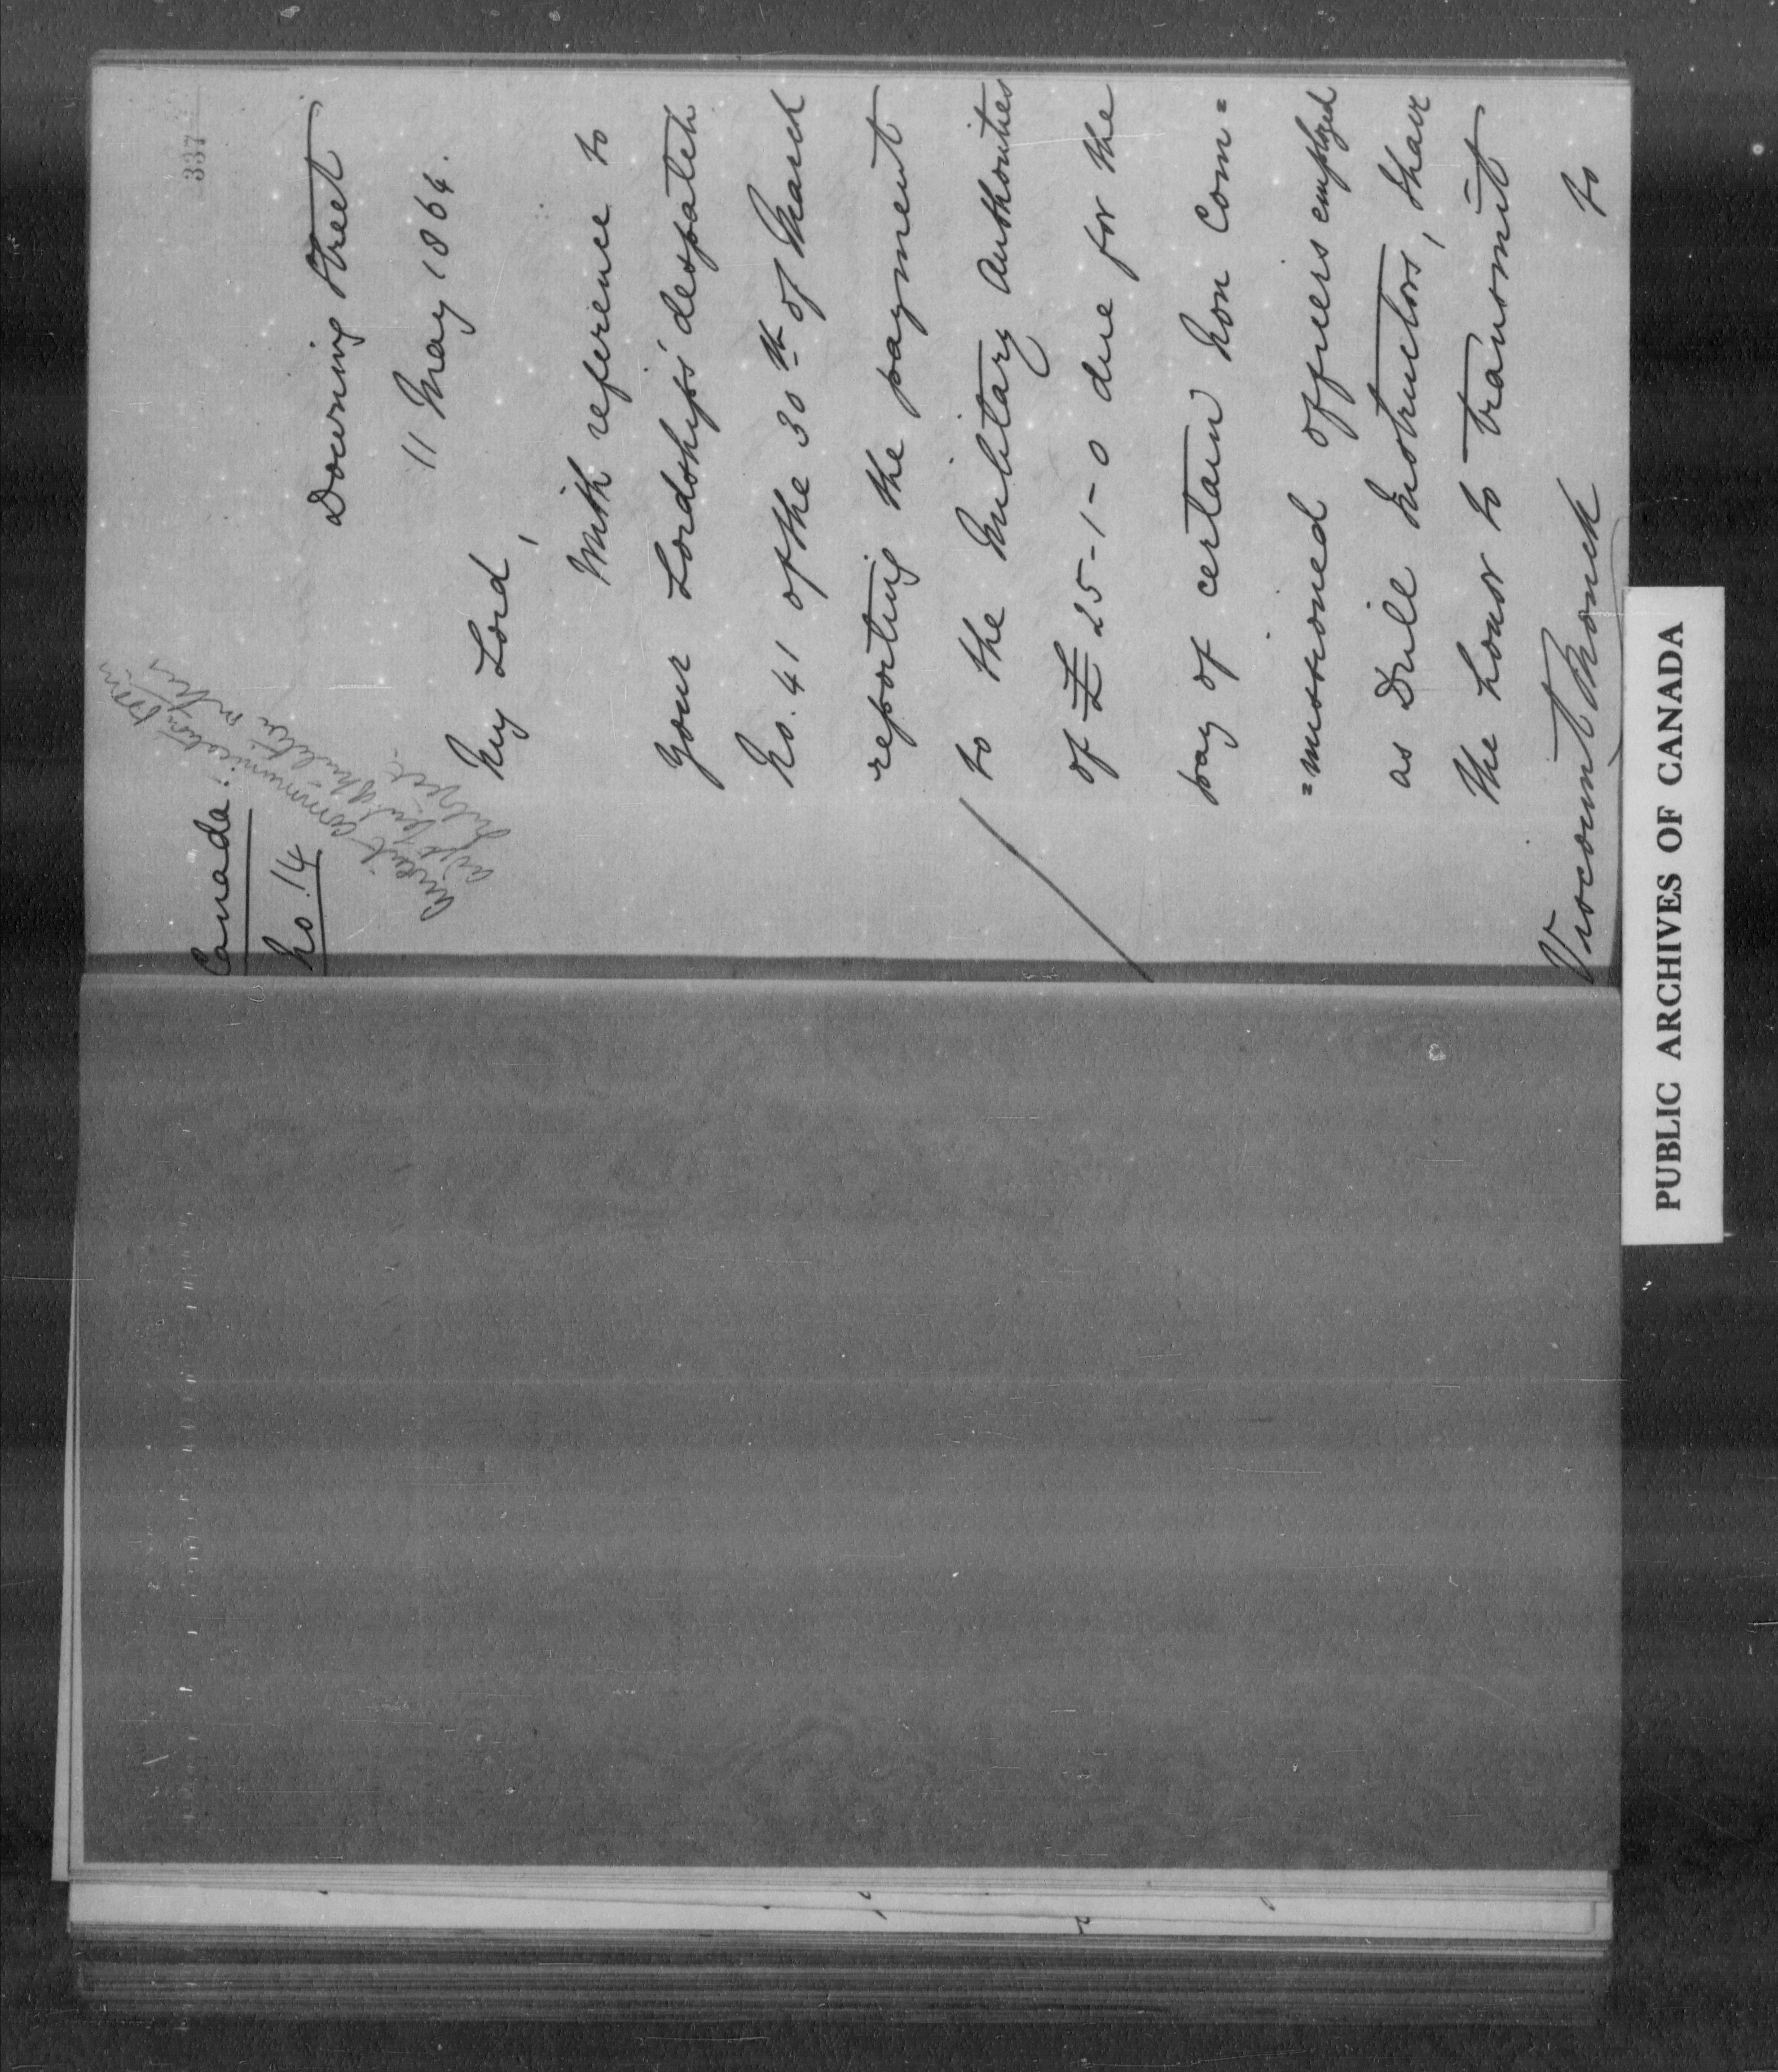 337
Canada.
No. 14
Downing Street
11 May 1864.
My Lord,
With reference to
Your Lordship's despatch
No. 41 of the 30th of March
reporting the payment
to the Military Authorities
of £25-1-0 due for the
pay of certain Non Com=
=missioned officers employed
as Drill Instructors, I have
the honor to transmit
to
Viscount Monck
communication from
subject
PUBLIC ARCHIVES OF CANADA